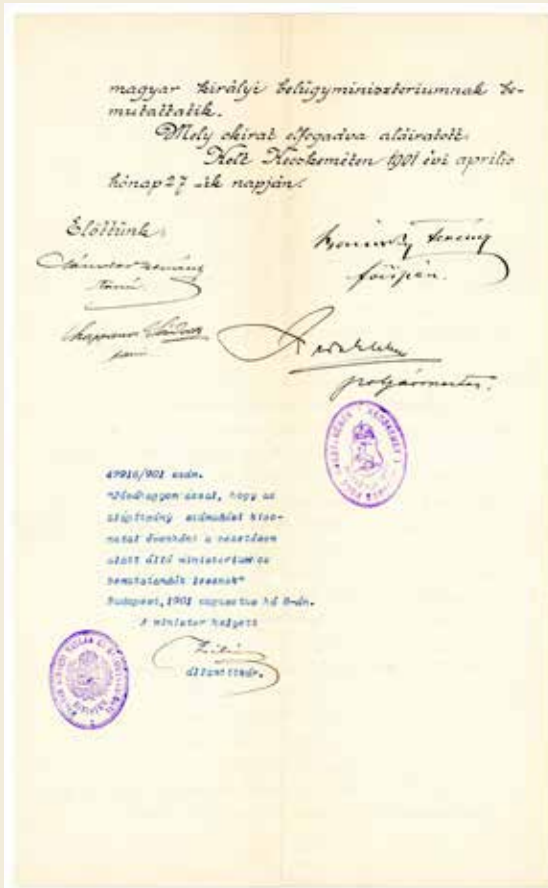 magyar királyi belügyminisztériumnak be-
mutattatik.
Mely okirat elfogadva aláiratott.
Kelt Kecskeméten 1901 évi április
hónap 27-ik napján.
Előttünk:
tanú.
főispán.
tanú
polgármester.
/901 szám.
"Jóváhagyom azzal, hogy az
alapítvány számadási kivo-
natai évenként a vezetésem
alatt álló ministeriumba
bemutatandók lesznek"
Budapest, 1901 augusztus hó 8-án.
A minister helyett
államtitkár.